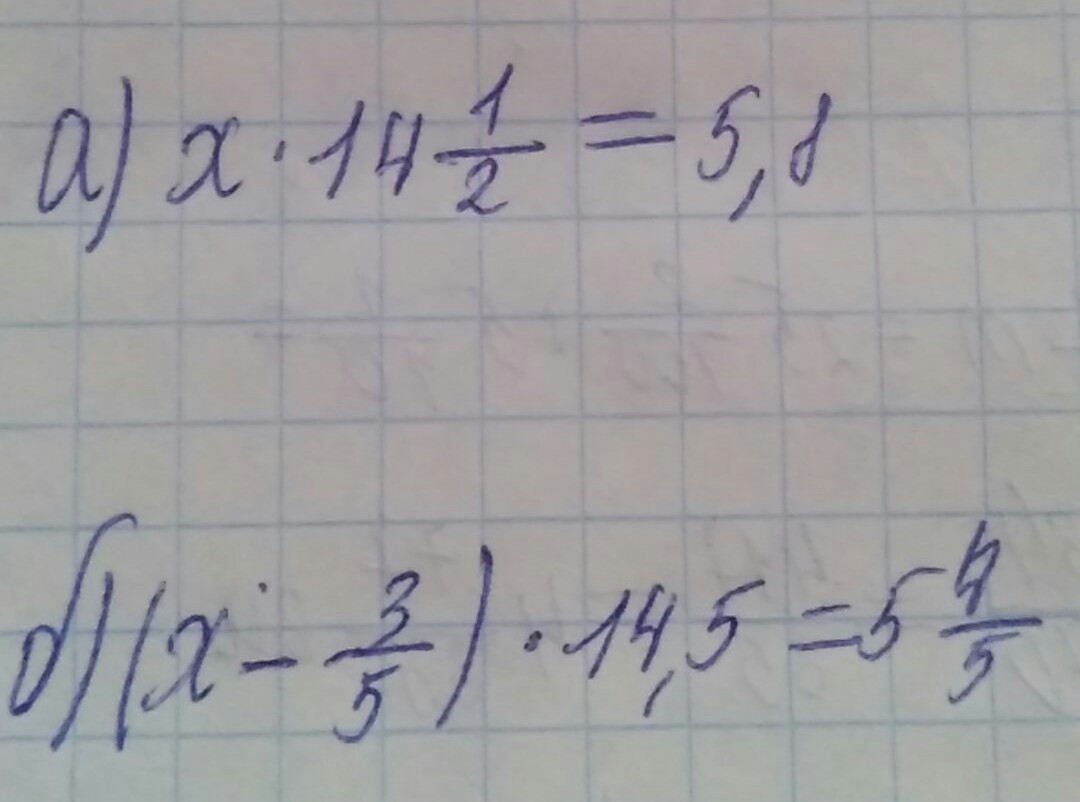 а) x · 14 1/2 = 5,8
б) (x - 3/5) · 14,5 = 5 4/5